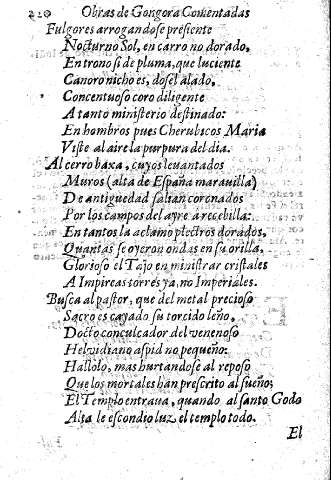 220 Obras de Gongora Comentadas
Fulgores arrogandose presiente
Nocturno Sol, en carro no dorado.
En trono si de pluma, que luciente
Canoro nicho es, dosel alado.
Concentuoso coro diligente
A tanto ministerio destinado:
En hombros pues Cherubicos Maria
Viste al aire la purpura del dia.
Al cerro baxa, cuyos leuantados
Muros (alta de España marauilla)
De antiguedad salian coronados
Por los campos del ayre a recebilla:
En tantos la aclamo plectros dorados,
Quantas se oyeron ondas en su orilla.
Glorioso el Tajo en ministrar cristales
A Impireas torres ya, no Imperiales.
Busca al pastor, que del metal precioso
Sacro es cayado su torcido leño.
Docto conculcador del venenoso
Helvidiano aspid no pequeño:
Hallolo, mas hurtandose al reposo
Que los mortales han prescrito al sueño;
El Templo entraua, quando al santo Godo
Alta le escondio luz el templo todo.
El